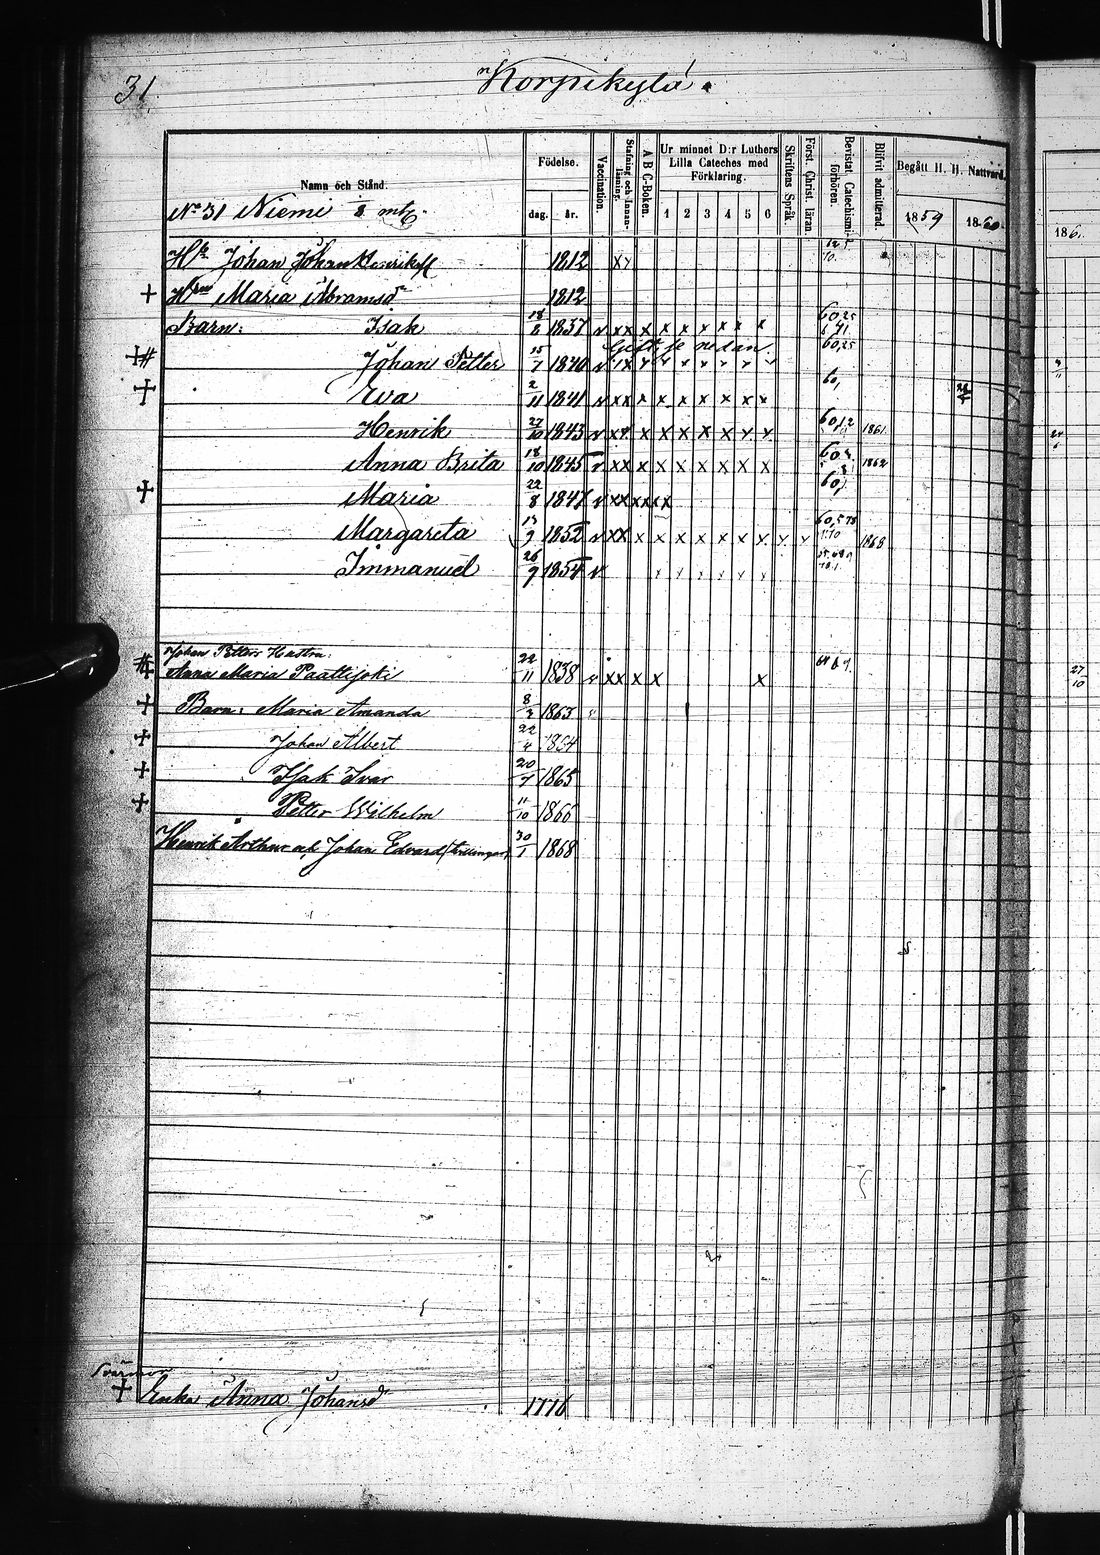 31.
Korpikylä.
Namn och Stånd.
Födelse.
dag. år.
Vaccination.
Stafning och Innanläsning.
A B C-Boken.
Ur minnet D:r Luthers Lilla Cateches med Förklaring.
1 2 3 4 5 6
Skriftens Språk.
Först. Christ. läran.
Bevistat Catechismi-förhören.
Blifvit admitterad.
Begått H. H. Nattvard.
1859 1860
186
No 31 Niemi mtl.
Johan Johan Henrikss 1812 x x
+ Maria Abramsdr 1812
Barn: Isak 18/2 1837 v x x x x x x x x x 60,25
Gift, se nedan.
Johan Petter 15/7 1840 v x x x x x x x x x 60,25
+ Eva 2/11 1841 v x x x x x x x x x 60,
Henrik 27/10 1843 v x x x x x x x x x 60,12 1861
Anna Brita 18/10 1845 v x x x x x x x x x 1862
+ Maria 22/8 1847 v x x x x x x 60,
Margareta 13/9 1852 v x x x x x x x x x x x 1868
Immanuel 26/9 1854 v x x x x x x
Johan Petters Hustru:
Anna Maria Paattijoki 22/11 1838 v x x x x x
27/10
+ Barn: Maria Amanda 8/2 1863
+ Johan Albert 22/4 1864
+ Isak Ivar 20/7 1865
+ Petter Wilhelm 11/10 1866
Henrik Arthur och Johan Edvard (tvillingar) 30/1 1868
Svärmor
+ Enka Anna Johansdr 1776